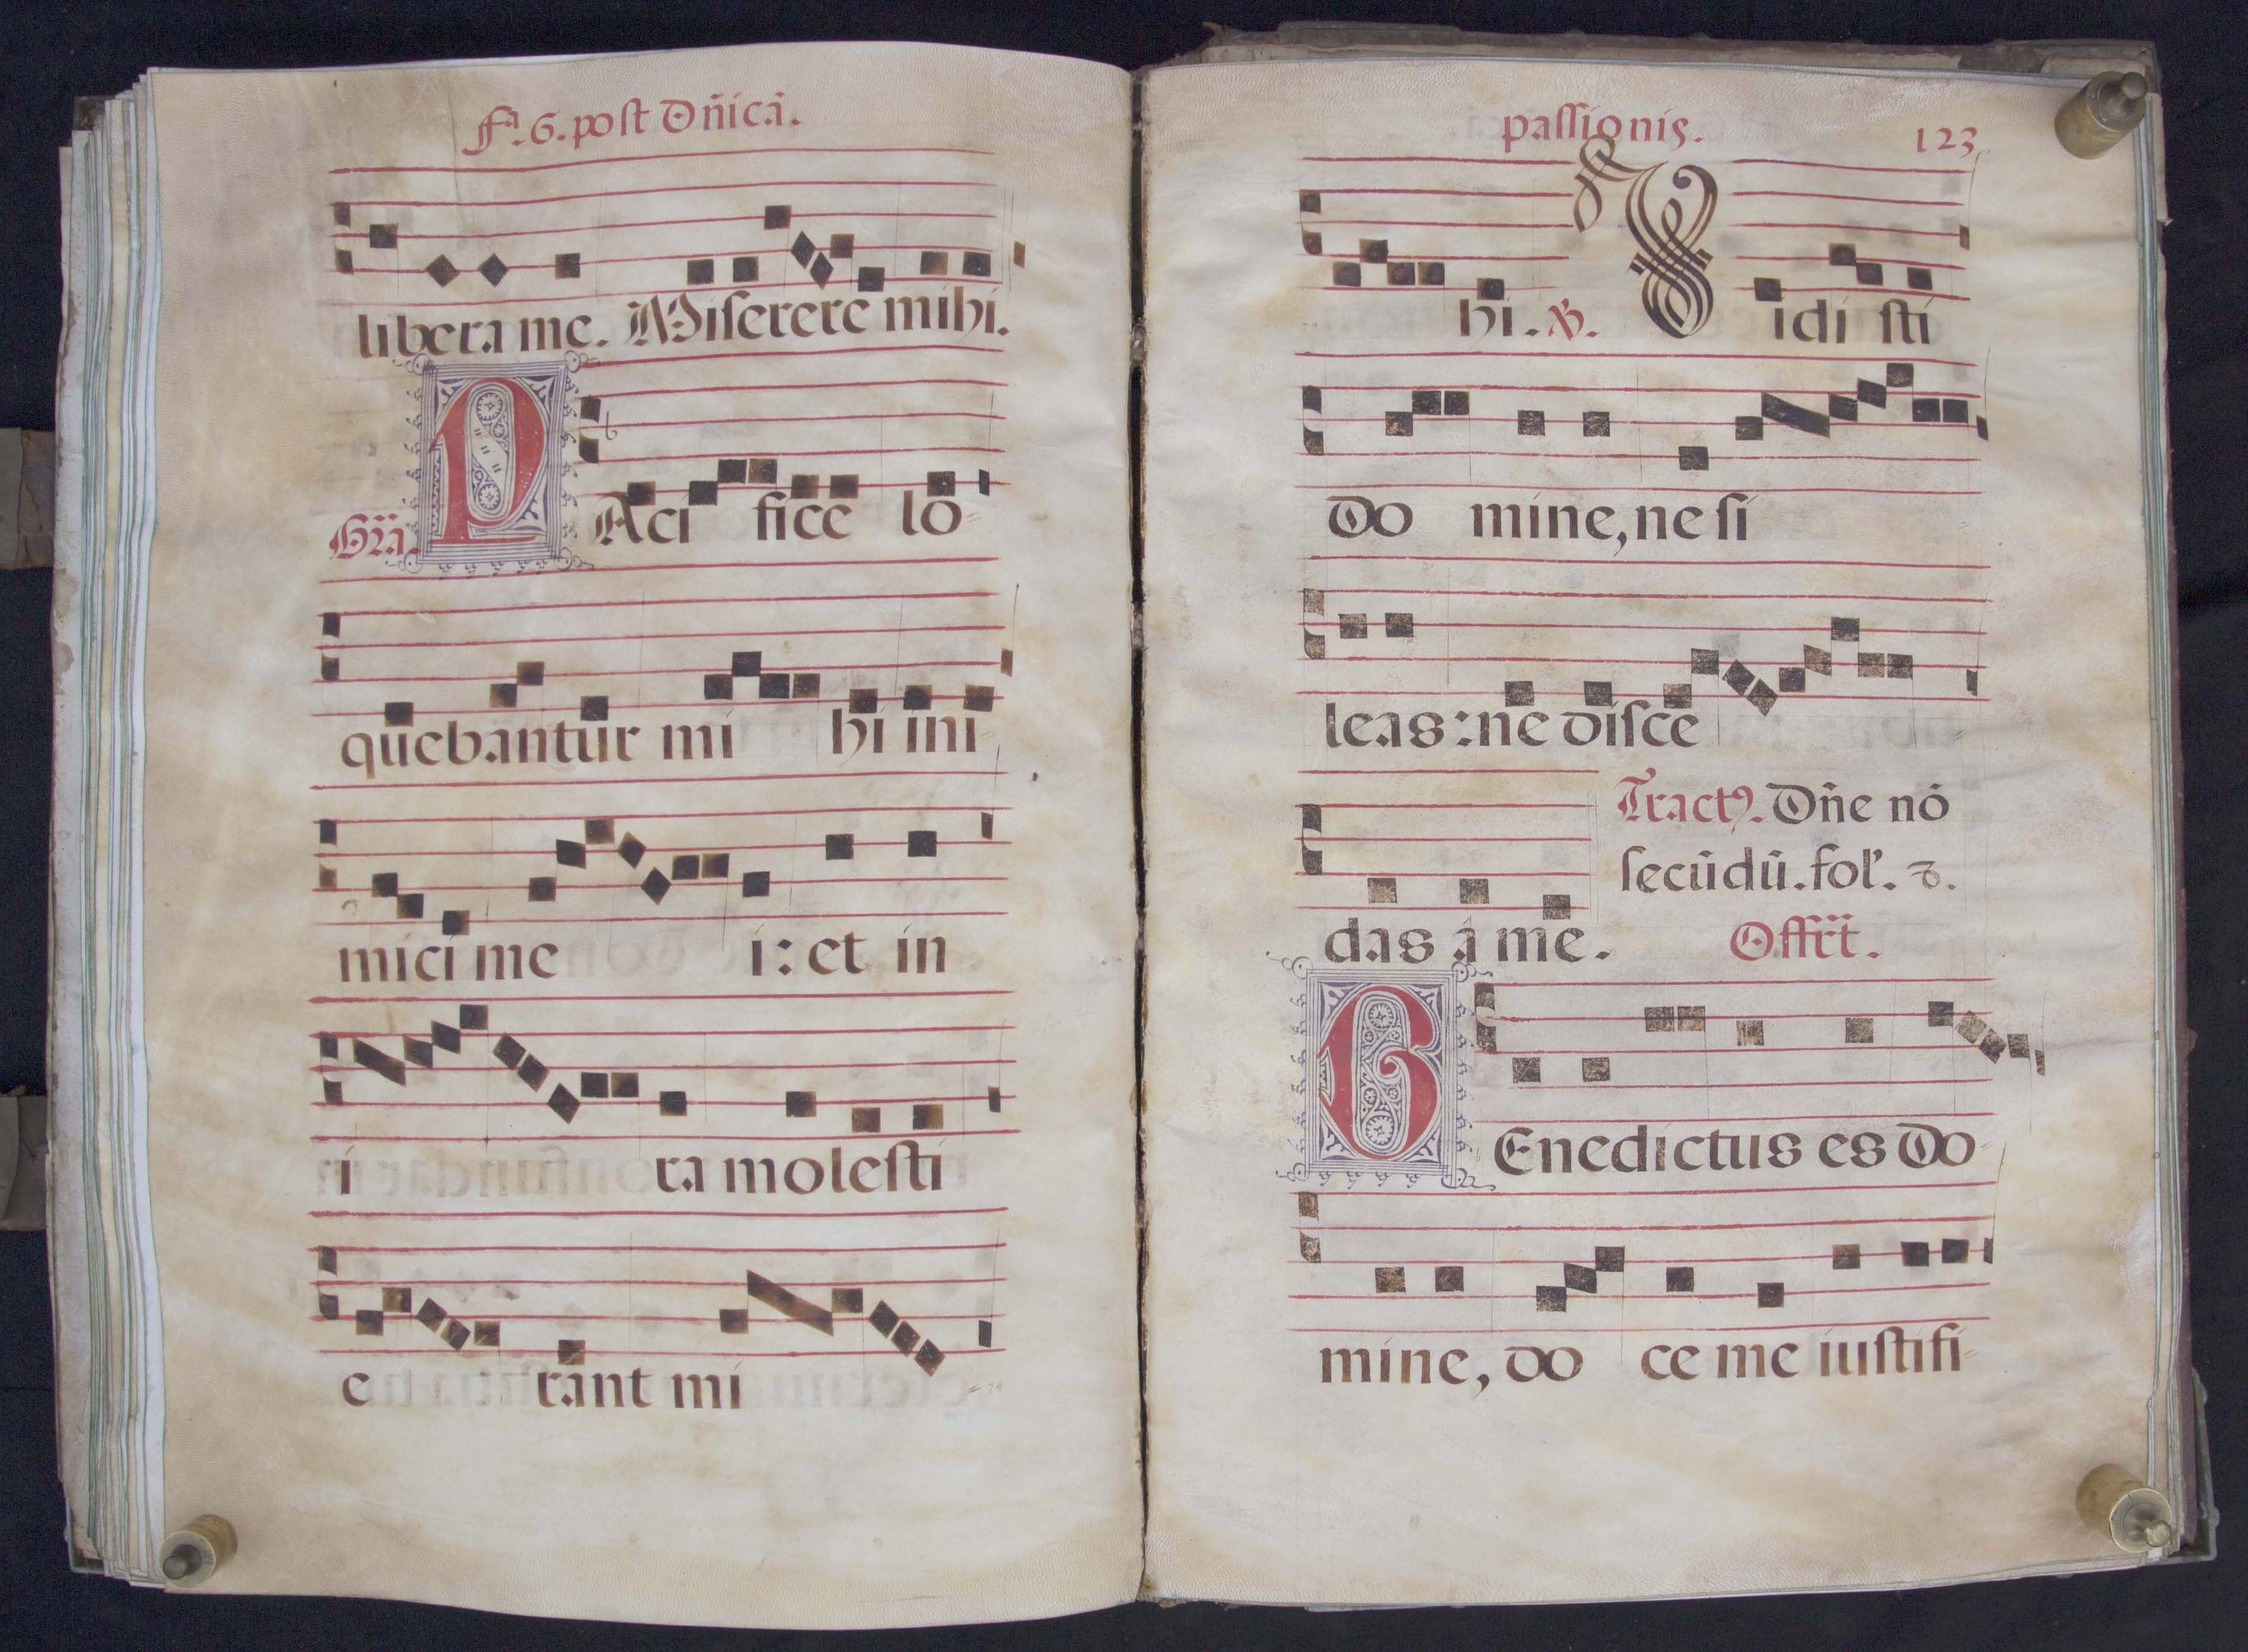 fa. 6. post Dñicā.
libera me. Miserere mihi.
Grã. PAci fice lo=
quebantur mi hi ini=
mici me i: et in
i ra molesti=
e rant mi
passionis. 123
hi. ℣. Vidi sti
Do mine, ne si
leas: ne disce
Tractꝰ. Dñe nō
secūdū. fol'. 2.
das a me. Offrt.
BEnedictus es Do=
mine, do ce me iustifi=